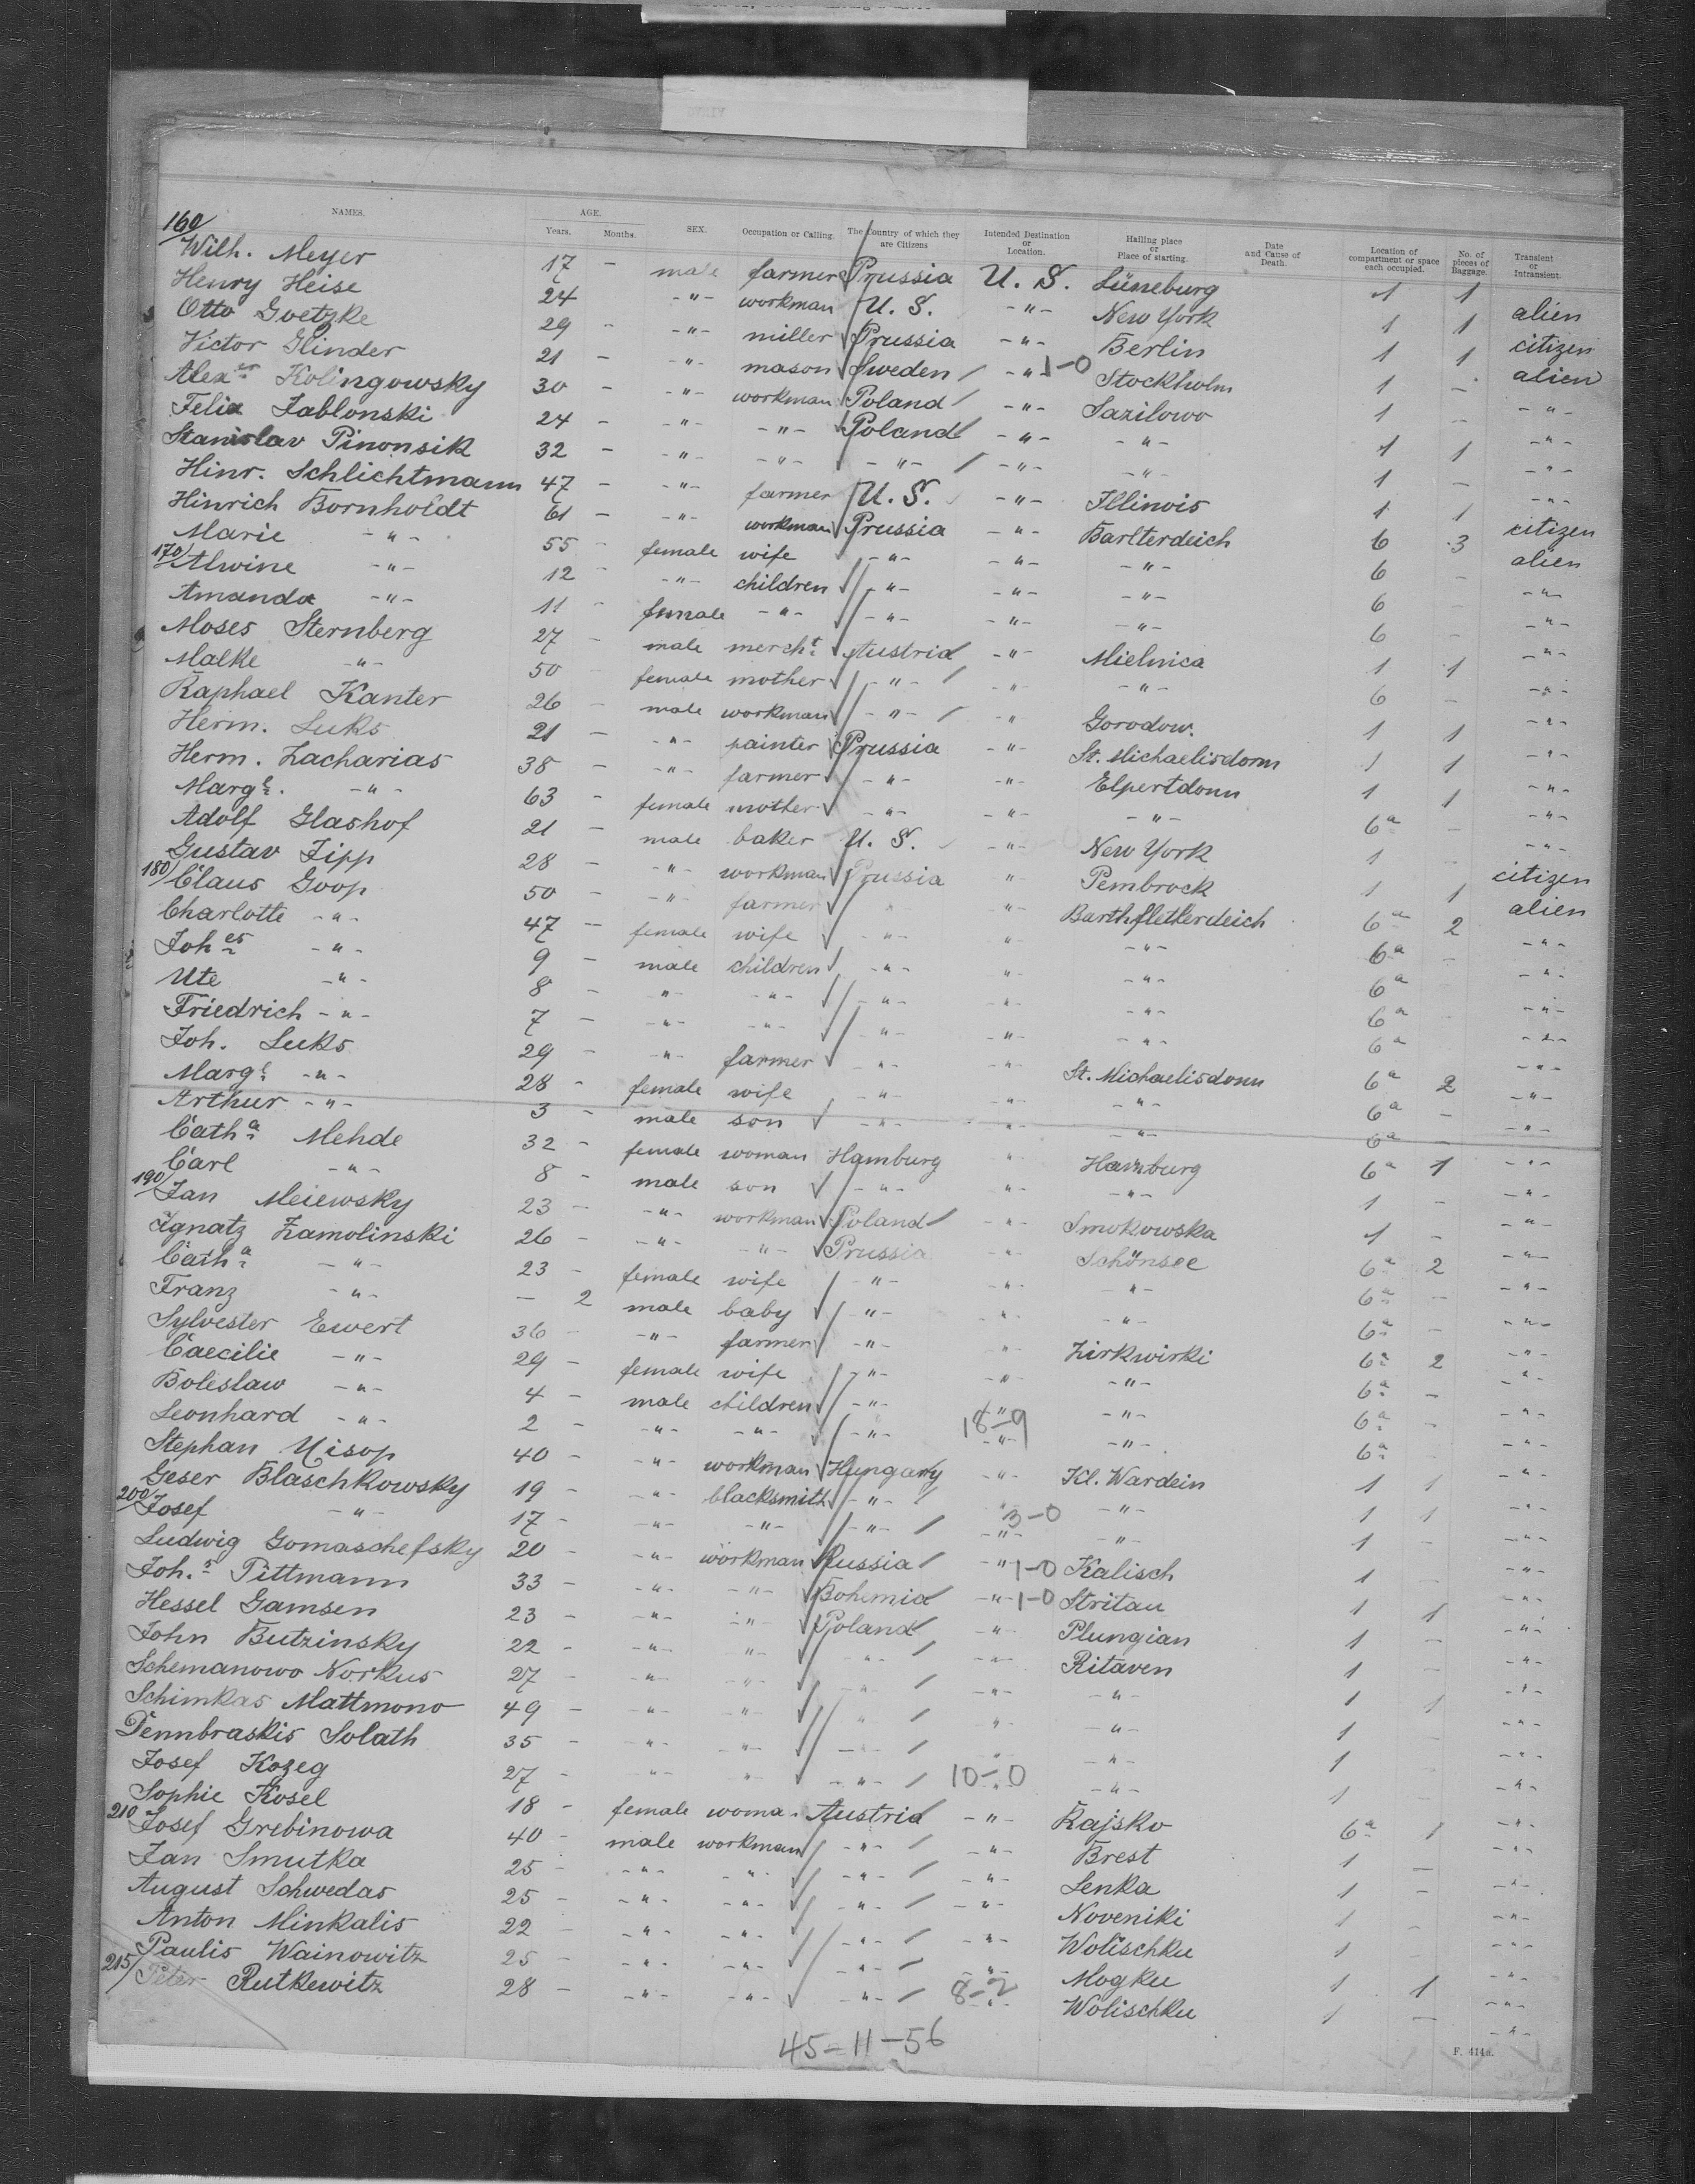 NAMES. AGE. Years. Months. SEX. Occupation or Calling. The Country of which they are Citizens Intended Destination or Location. Hailing place or Place of starting. Date and Cause of Death. Location of compartment or space each occupied. No. of pieces of Baggage. Transient or Intransient.
160/ Wilh. Meyer 17 - male farmer Prussia U. S. Lüneburg 1 1 alien
Henry Heise 24 -"- workman U. S. -"- New York 1 1 citizen
Otto Goetzke 29 - -"- miller Prussia -"- Berlin 1 1 alien
Victor Glinder 21 - -"- mason Sweden -"- 1-0 Stockholm 1 - -"-
Alexer Kolingowsky 30 - -"- workman Poland -"- Sazilowo 1 - -"-
Felix Jablonski 24 - -"- -"- Poland -"- -"- 1 1 -"-
Stanislav Pinonsik 32 - -"- -"- -"- -"- -"- 1 - -"-
Hinr. Schlichtmann 47 - -"- farmer U. S. -"- Illinois 1 1 citizen
Hinrich Bornholdt 61 - -"- workman Prussia -"- Barlterdeich 6 3 alien
Marie -"- 55 - female wife -"- -"- -"- 6 - -"-
170/ Alwine -"- 12 - -"- children -"- -"- -"- 6 - -"-
Amanda -"- 11 - female -"- -"- -"- -"- 6 - -"-
Moses Sternberg 27 - male mercht Austria -"- Mielnica 1 1 -"-
Malke -"- 50 - female mother -"- -"- -"- 6 - -"-
Raphael Kanter 26 - male workman -"- -"- Gorodow. 1 1 -"-
Herm. Luks 21 - -"- painter Prussia -"- St. Michaelisdonn 1 1 -"-
Herm. Zacharias 38 - -"- farmer -"- -"- Elpertdonn 1 1 -"-
Margt. -"- 63 - female mother -"- -"- -"- 6a - -"-
Adolf Glashof 21 - male baker U. S. -"- New York 1 - citizen
Gustav Zipp 28 - -"- workman Prussia " Pembrock 1 1 alien
180/ Claus Goop 50 - -"- farmer " -"- Barthfletherdeich 6a 2 -"-
Charlotte -"- 47 - female wife -"- " -"- 6a - -"-
Johes -"- 9 - male children -"- " -"- 6a -"-
Ute -"- 8 - -"- -"- -"- -"- -"- 6a -"-
Friedrich -"- 7 - -"- -"- -"- -"- -"- 6a -"-
Joh. Luks 29 - -"- farmer " -"- St. Michaelisdonn 6a 2 -"-
Margt. -"- 28 - female wife -"- -"- -"- 6a - -"-
Arthur -"- 3 - male son -"- " -"- 6a - -"-
Catha Mehde 32 - female woman Hamburg " Hamburg 6a 1 -"-
Carl -"- 8 - male son -"- " -"- 1 - -"-
190/ Jan Meiewsky 23 - -"- workman Poland -"- Smokowska 1 - -"-
Ignatz Zamolinski 26 - -"- -"- Prussia -"- Schönsee 6a 2 -"-
Catha -"- 23 - female wife -"- -"- -"- 6a - -"-
Franz -"- - 2 male baby -"- -"- -"- 6a - -"-
Sylvester Ewert 36 - -"- farmer -"- " Zirkwirki 6a 2 -"-
Caecilie -"- 29 - female wife -"- -"- -"- 6a - -"-
Boleslaw -"- 4 - male children -"- -"- -"- 6a - -"-
Leonhard -"- 2 - -"- -"- -"- 18-9 -"- -"- 6a -"-
Stephan Uisop 40 - -"- workman Hungary -"- Kl. Wardein 1 1 -"-
Geser Blaschkowsky 19 - -"- blacksmith -"- " -"- 1 1 -"-
200/ Josef -"- 17 - -"- -"- -"- 3-0 -"- -"- 1 - -"-
Ludwig Gomaschefsky 20 - -"- workman Russia -"- 1-0 Kalisch 1 - -"-
Joh.s Pittmann 33 - -"- -"- Bohemia -"- 1-0 Stritau 1 1 -"-
Hessel Gamsen 23 - -"- -"- Poland -"- Plungian 1 - -"-
John Butzinsky 22 - -"- -"- -"- -"- Ritaven 1 - -"-
Schemanowo Norkus 27 - -"- -"- -"- -"- -"- 1 1 -"-
Schimkas Mattmono 49 - -"- -"- " "- -"- 1 - -"-
Dennbraskis Solath 35 - -"- -"- -"- " -"- 1 -"-
Josef Kozeg 27 - -"- " -"- 10-0 -"- 1 - -"-
Sophie Kosel 18 - female woman Austria -"- Rajsko 6a 1 -"-
210 Josef Grebinowa 40 - male workman -"- -"- Brest 1 - -"-
Jan Smutka 25 - -"- " -"- -"- Senka 1 - -"-
August Schwedas 25 - -"- -"- -"- -"- Noveniki 1 - -"-
Anton Minkalis 22 - -"- -"- -"- -"- Wolischku 1 - -"-
Paulis Wainowitz 25 - -"- -"- -"- -"- Mogku 1 1 -"-
215/ Peter Rutkewitz 28 - -"- -"- -"- 8-2 -"- Wolischku 1 - -"-
45-11-56
F. 414a.